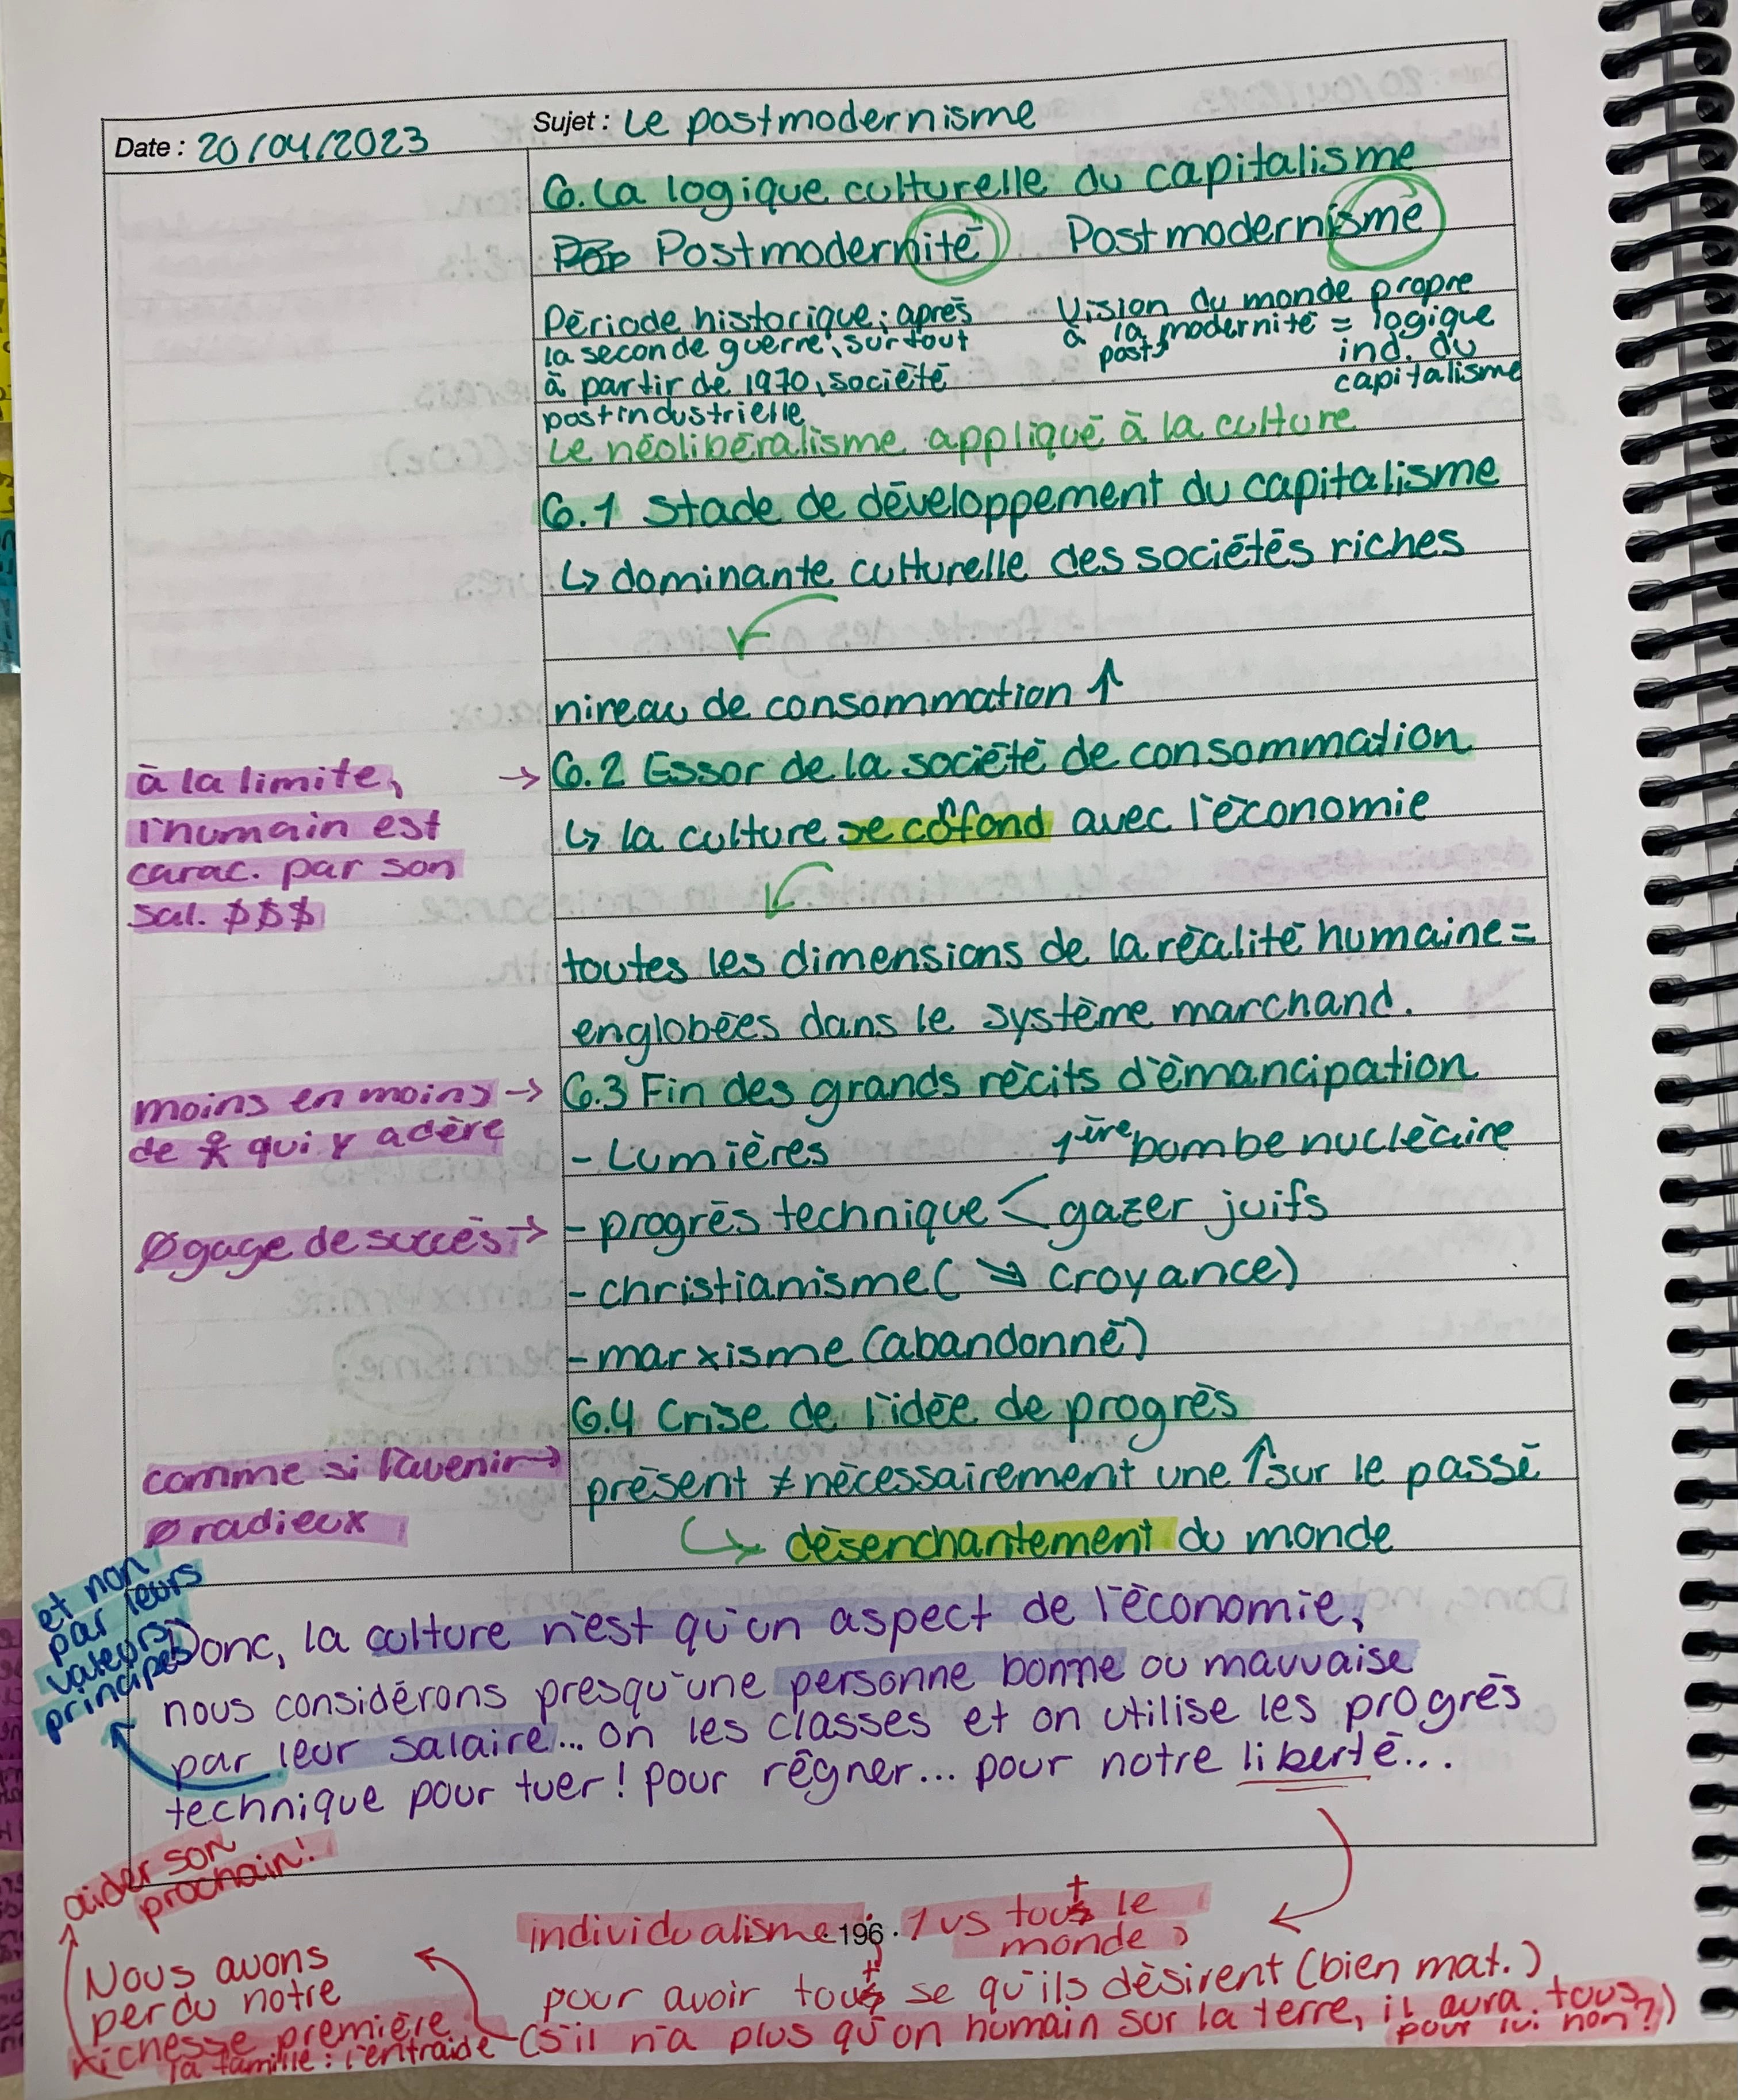 Date : 20/04/2023
Sujet : Le postmodernisme
6. La logique culturelle du capitalisme
Postmodernité Postmodernisme
Période historique; après
la seconde guerre, surtout
à partir de 1970, société
postindustrielle
Vision du monde propre
à la postmodernité = logique
ind. du
capitalisme
Le néolibéralisme appliqué à la culture
6.1 Stade de développement du capitalisme
↳ dominante culturelle des sociétés riches
niveau de consommation ↑
à la limite, →
l'humain est
carac. par son
sal. $$$
6.2 Essor de la société de consommation
↳ la culture se confond avec l'économie
toutes les dimensions de la réalité humaine =
englobées dans le système marchand.
moins en moins →
de qui y adère
6.3 Fin des grands récits d'émancipation
- Lumières
1ère bombe nuclèaire
Ø gage de succès →
- progrès technique < gazer juifs
- christianisme (↘ croyance)
- marxisme (abandonné)
6.4 Crise de l'idée de progrès
comme si l'avenir →
Ø radieux
présent ≠ nécessairement une ↑ sur le passé
↳ désenchantement du monde
et non
par leurs
valeurs,
principes
Donc, la culture n'est qu'un aspect de l'économie,
nous considérons presqu'une personne bonne ou mauvaise
par leur salaire... on les classes et on utilise les progrès
technique pour tuer ! pour régner... pour notre liberté...
aider son
prochain!
individualisme : 1 vs tout le
monde
· 196 ·
pour avoir tout se qu'ils désirent (bien mat.)
(s'il n'a plus qu'on humain sur la terre, il aura tous
pour lui non?)
Nous avons
perdu notre
richesse première
la famille : l'entraide